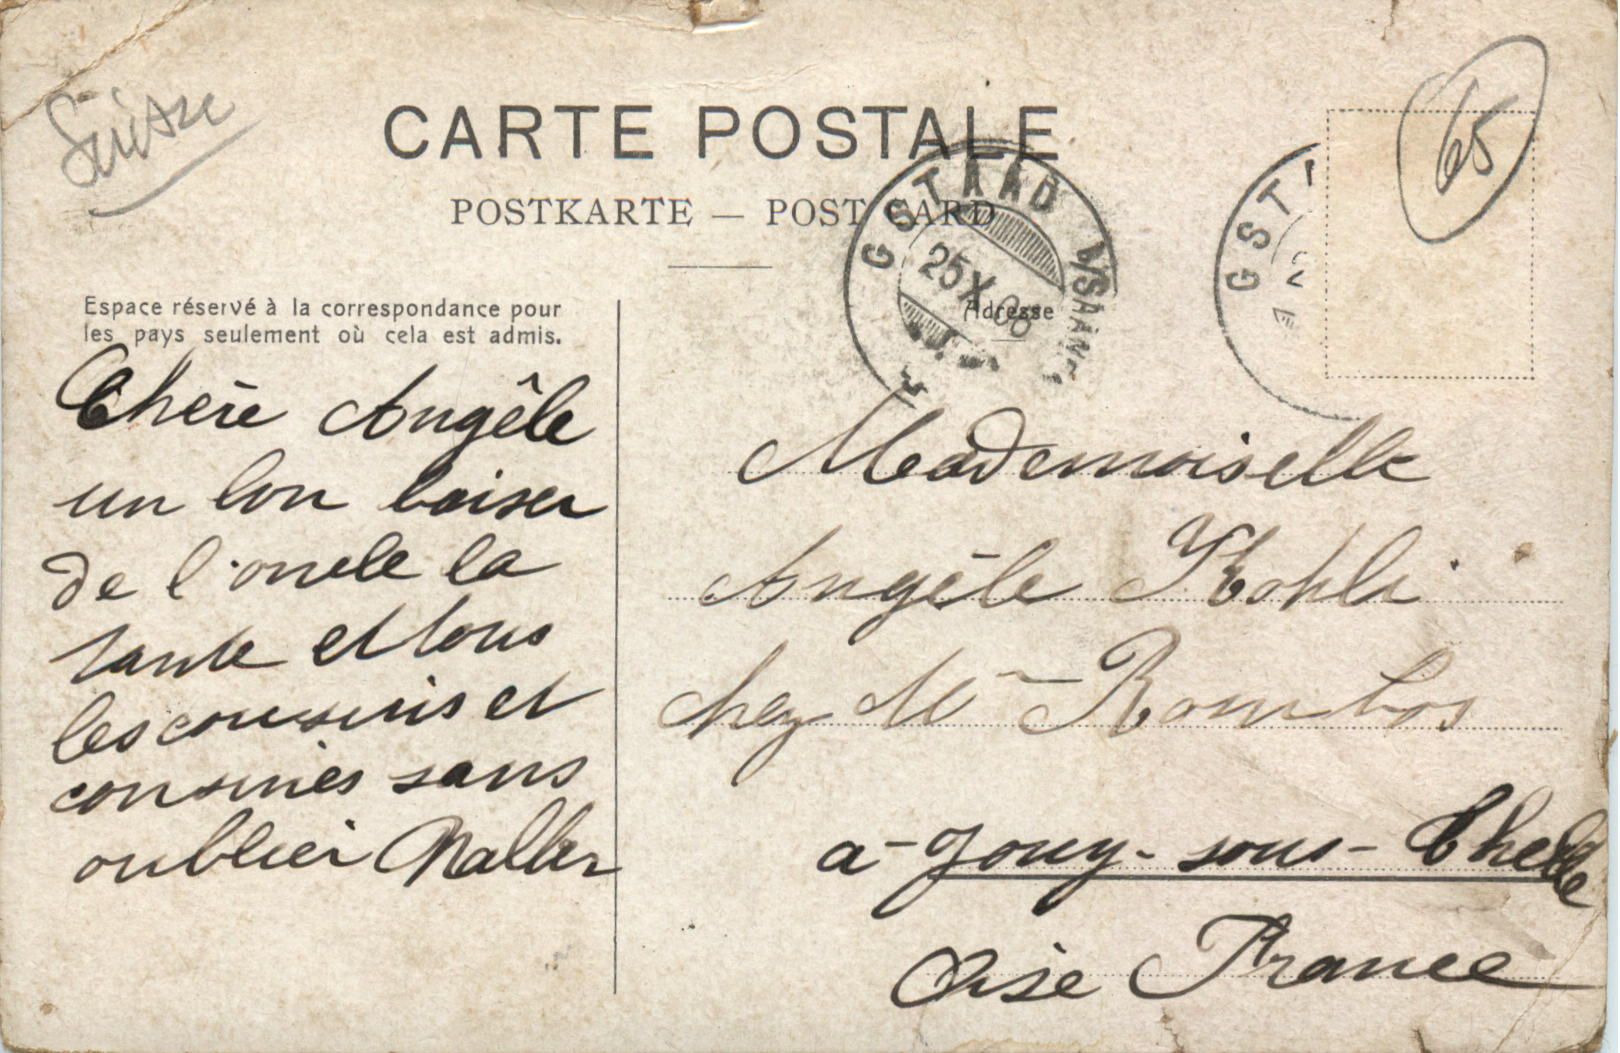 Suisse
65
CARTE POSTALE
POSTKARTE — POST CARD
GSTAAD (SAANEN)
25 X 08
GST
Espace réservé à la correspondance pour
les pays seulement où cela est admis.
Adresse
Chère Angêle
un bon baiser
de l'oncle la
tante et tous
les cousins et
cousines sans
oublier
Mademoiselle
Angêle Kohli
chez Mr Rombos
a-Jouy-sous-Thelle
Oise France